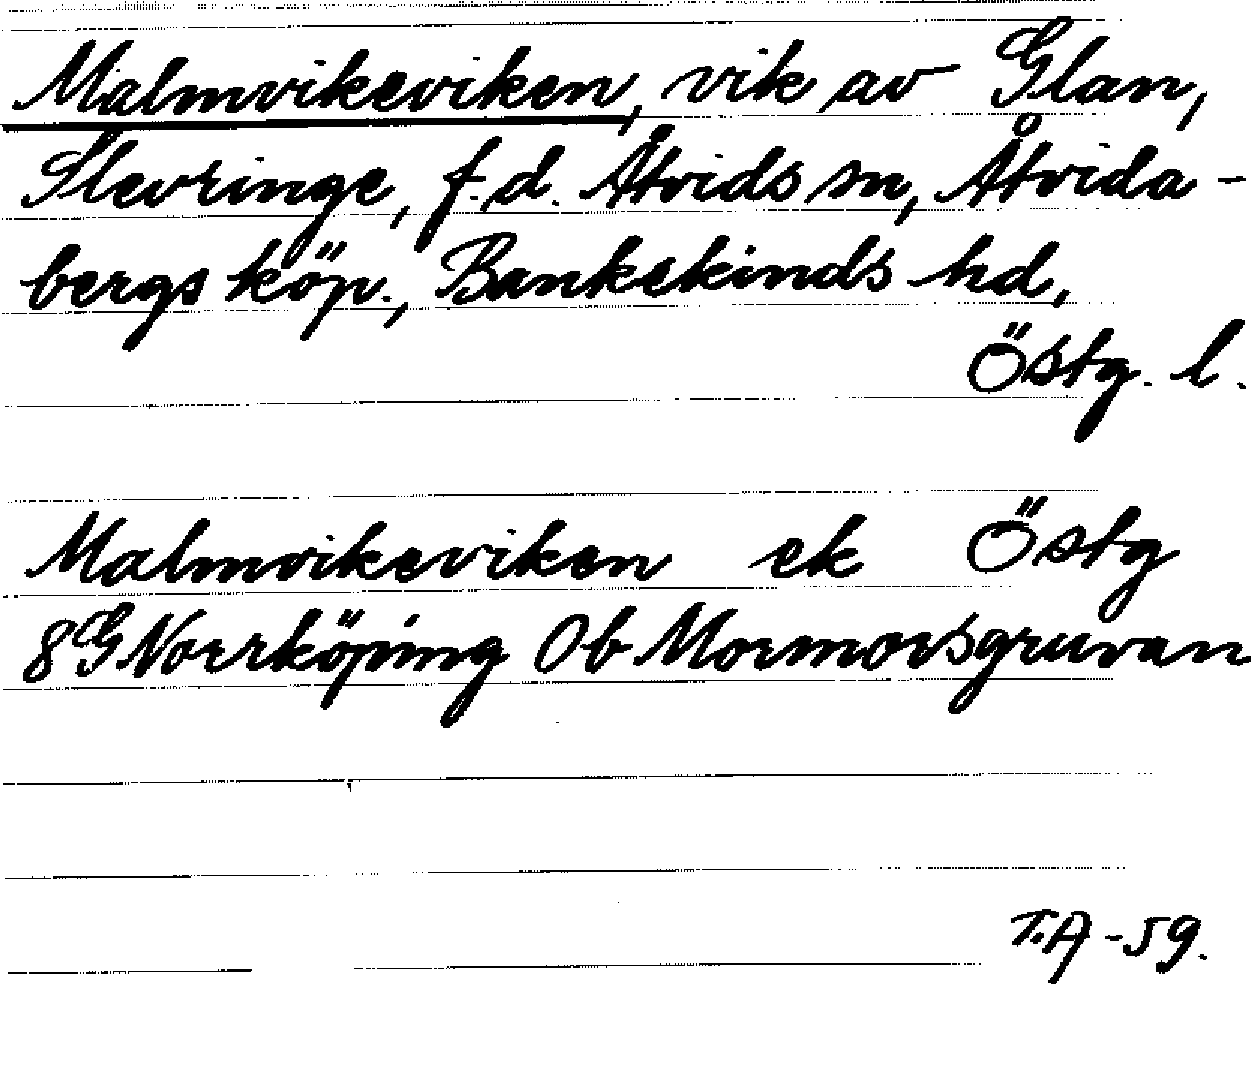 Malmvikeviken, vik av Glan,
Slevringe, f.d. Åtvids sn, Åtvida-
bergs köp., Bankekinds hd,
Östg. l.
Malmvikeviken ek Östg
8G Norrköping Ob Mormorsgruvan
T.A -59.